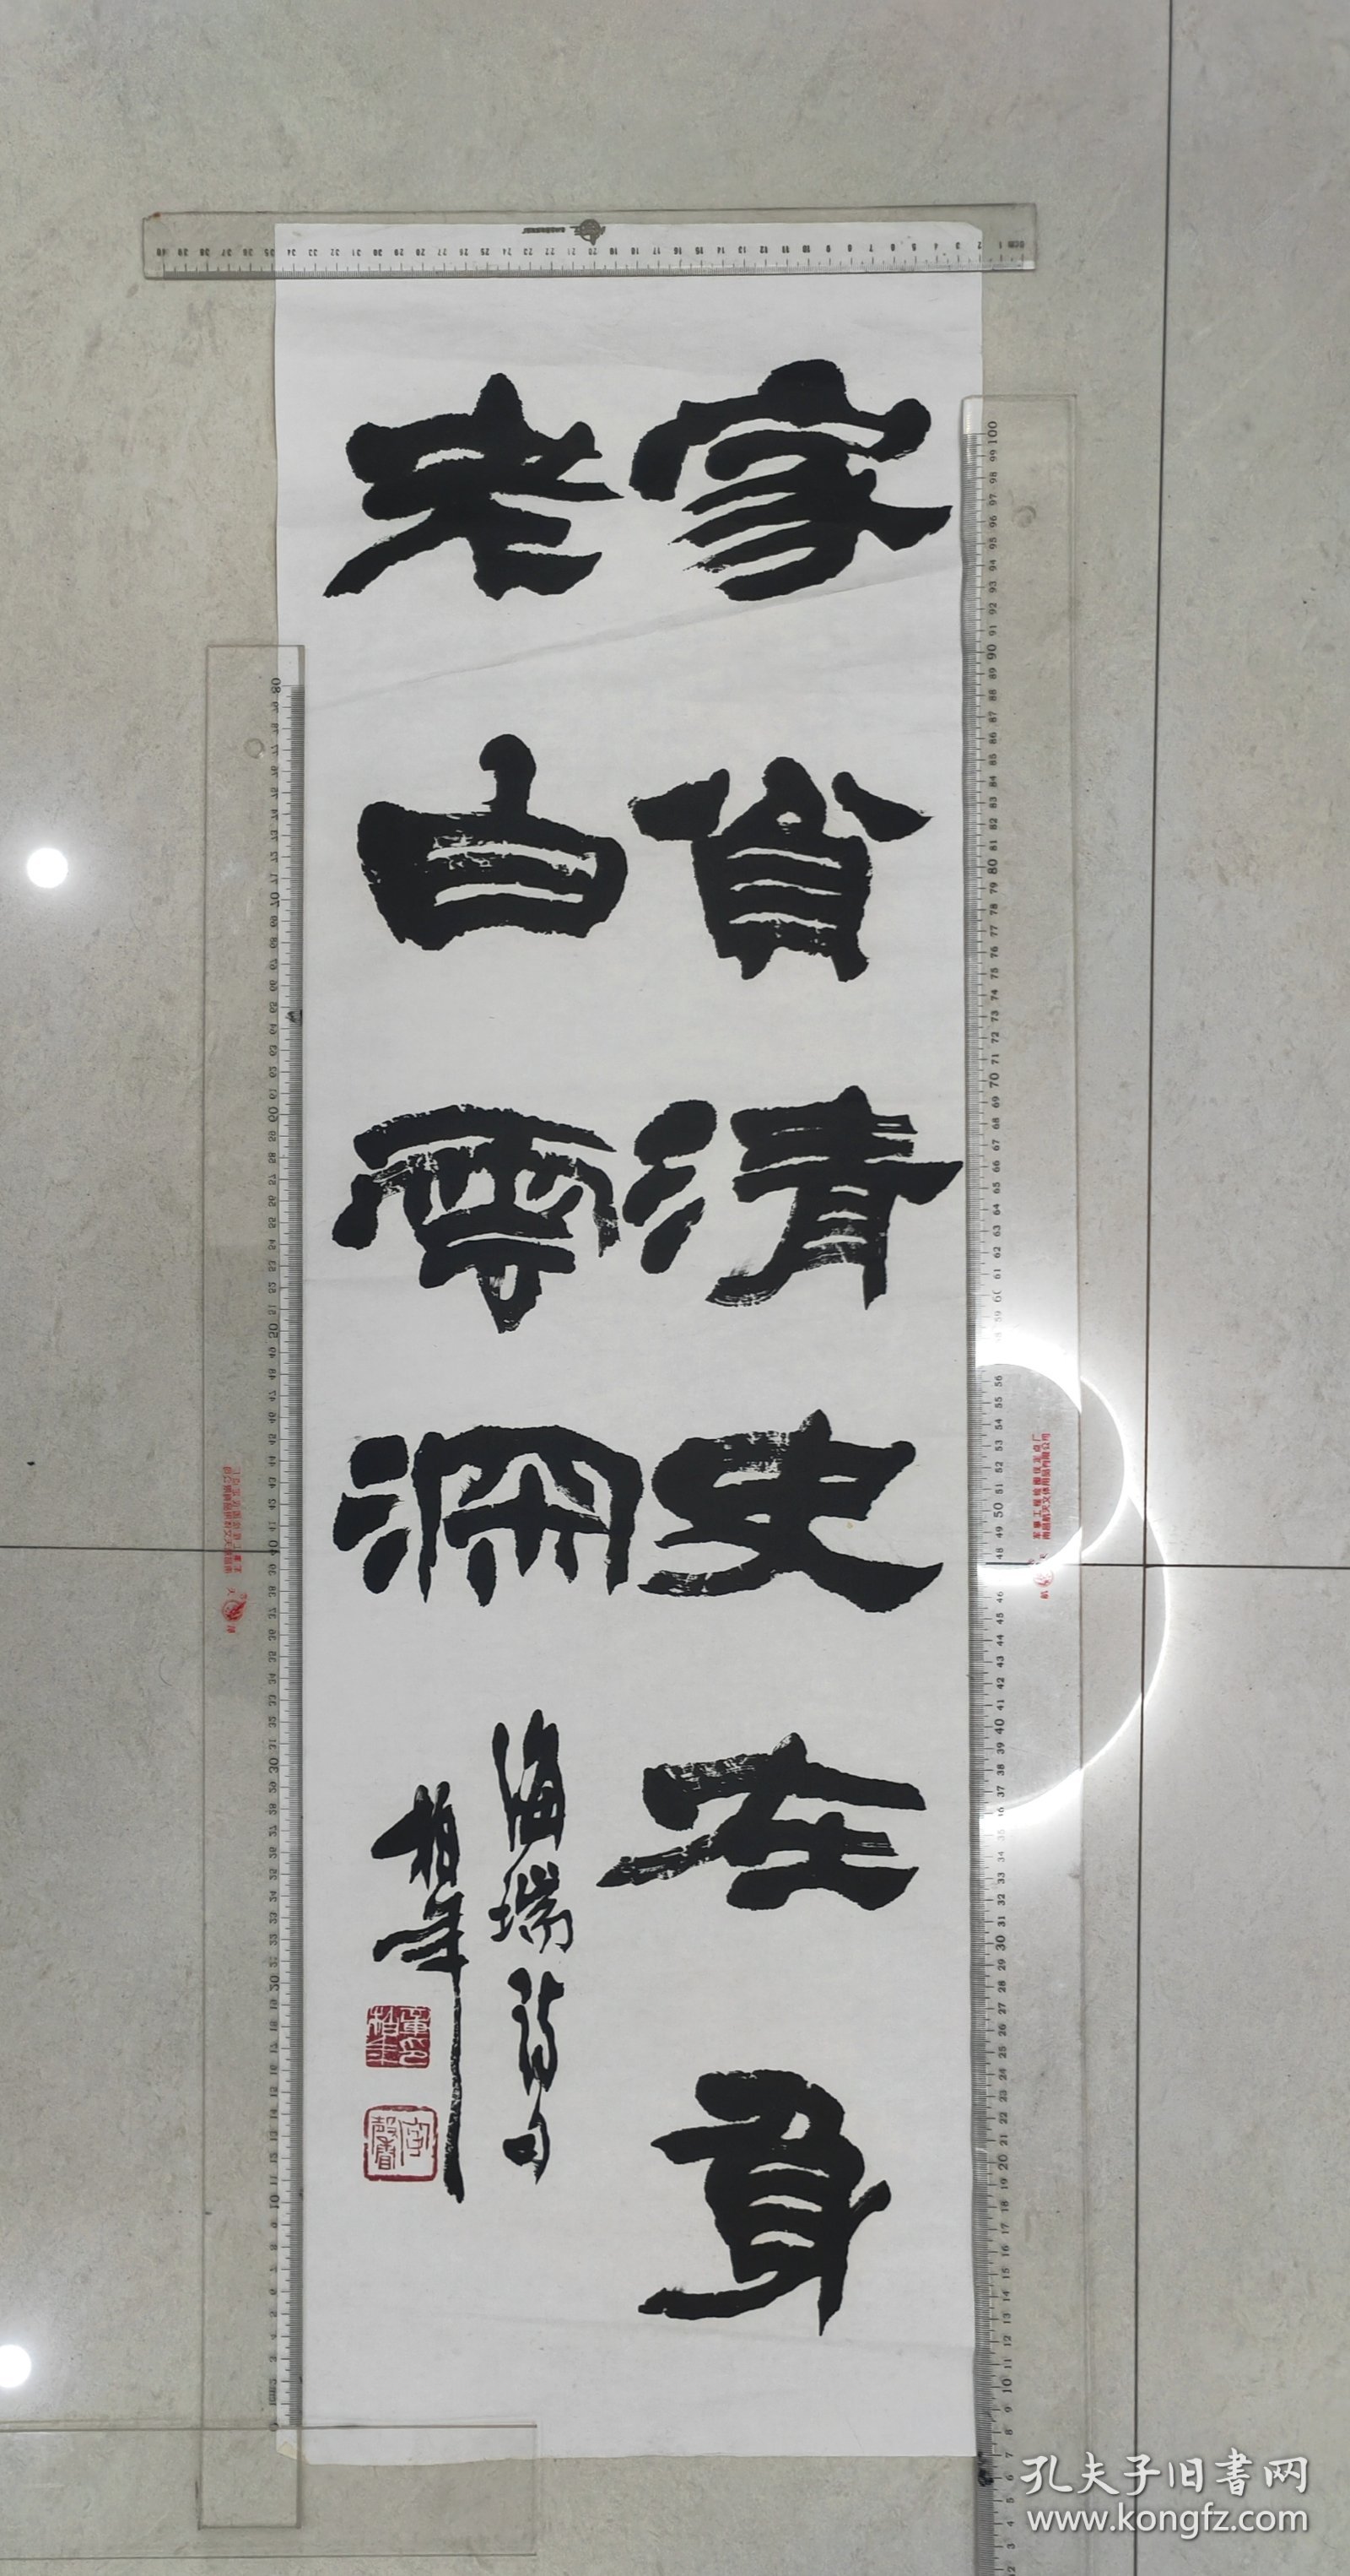 家貧清史在身
老白雲深
海瑞詩句
柏年
孔夫子旧書网
www.kongfz.com